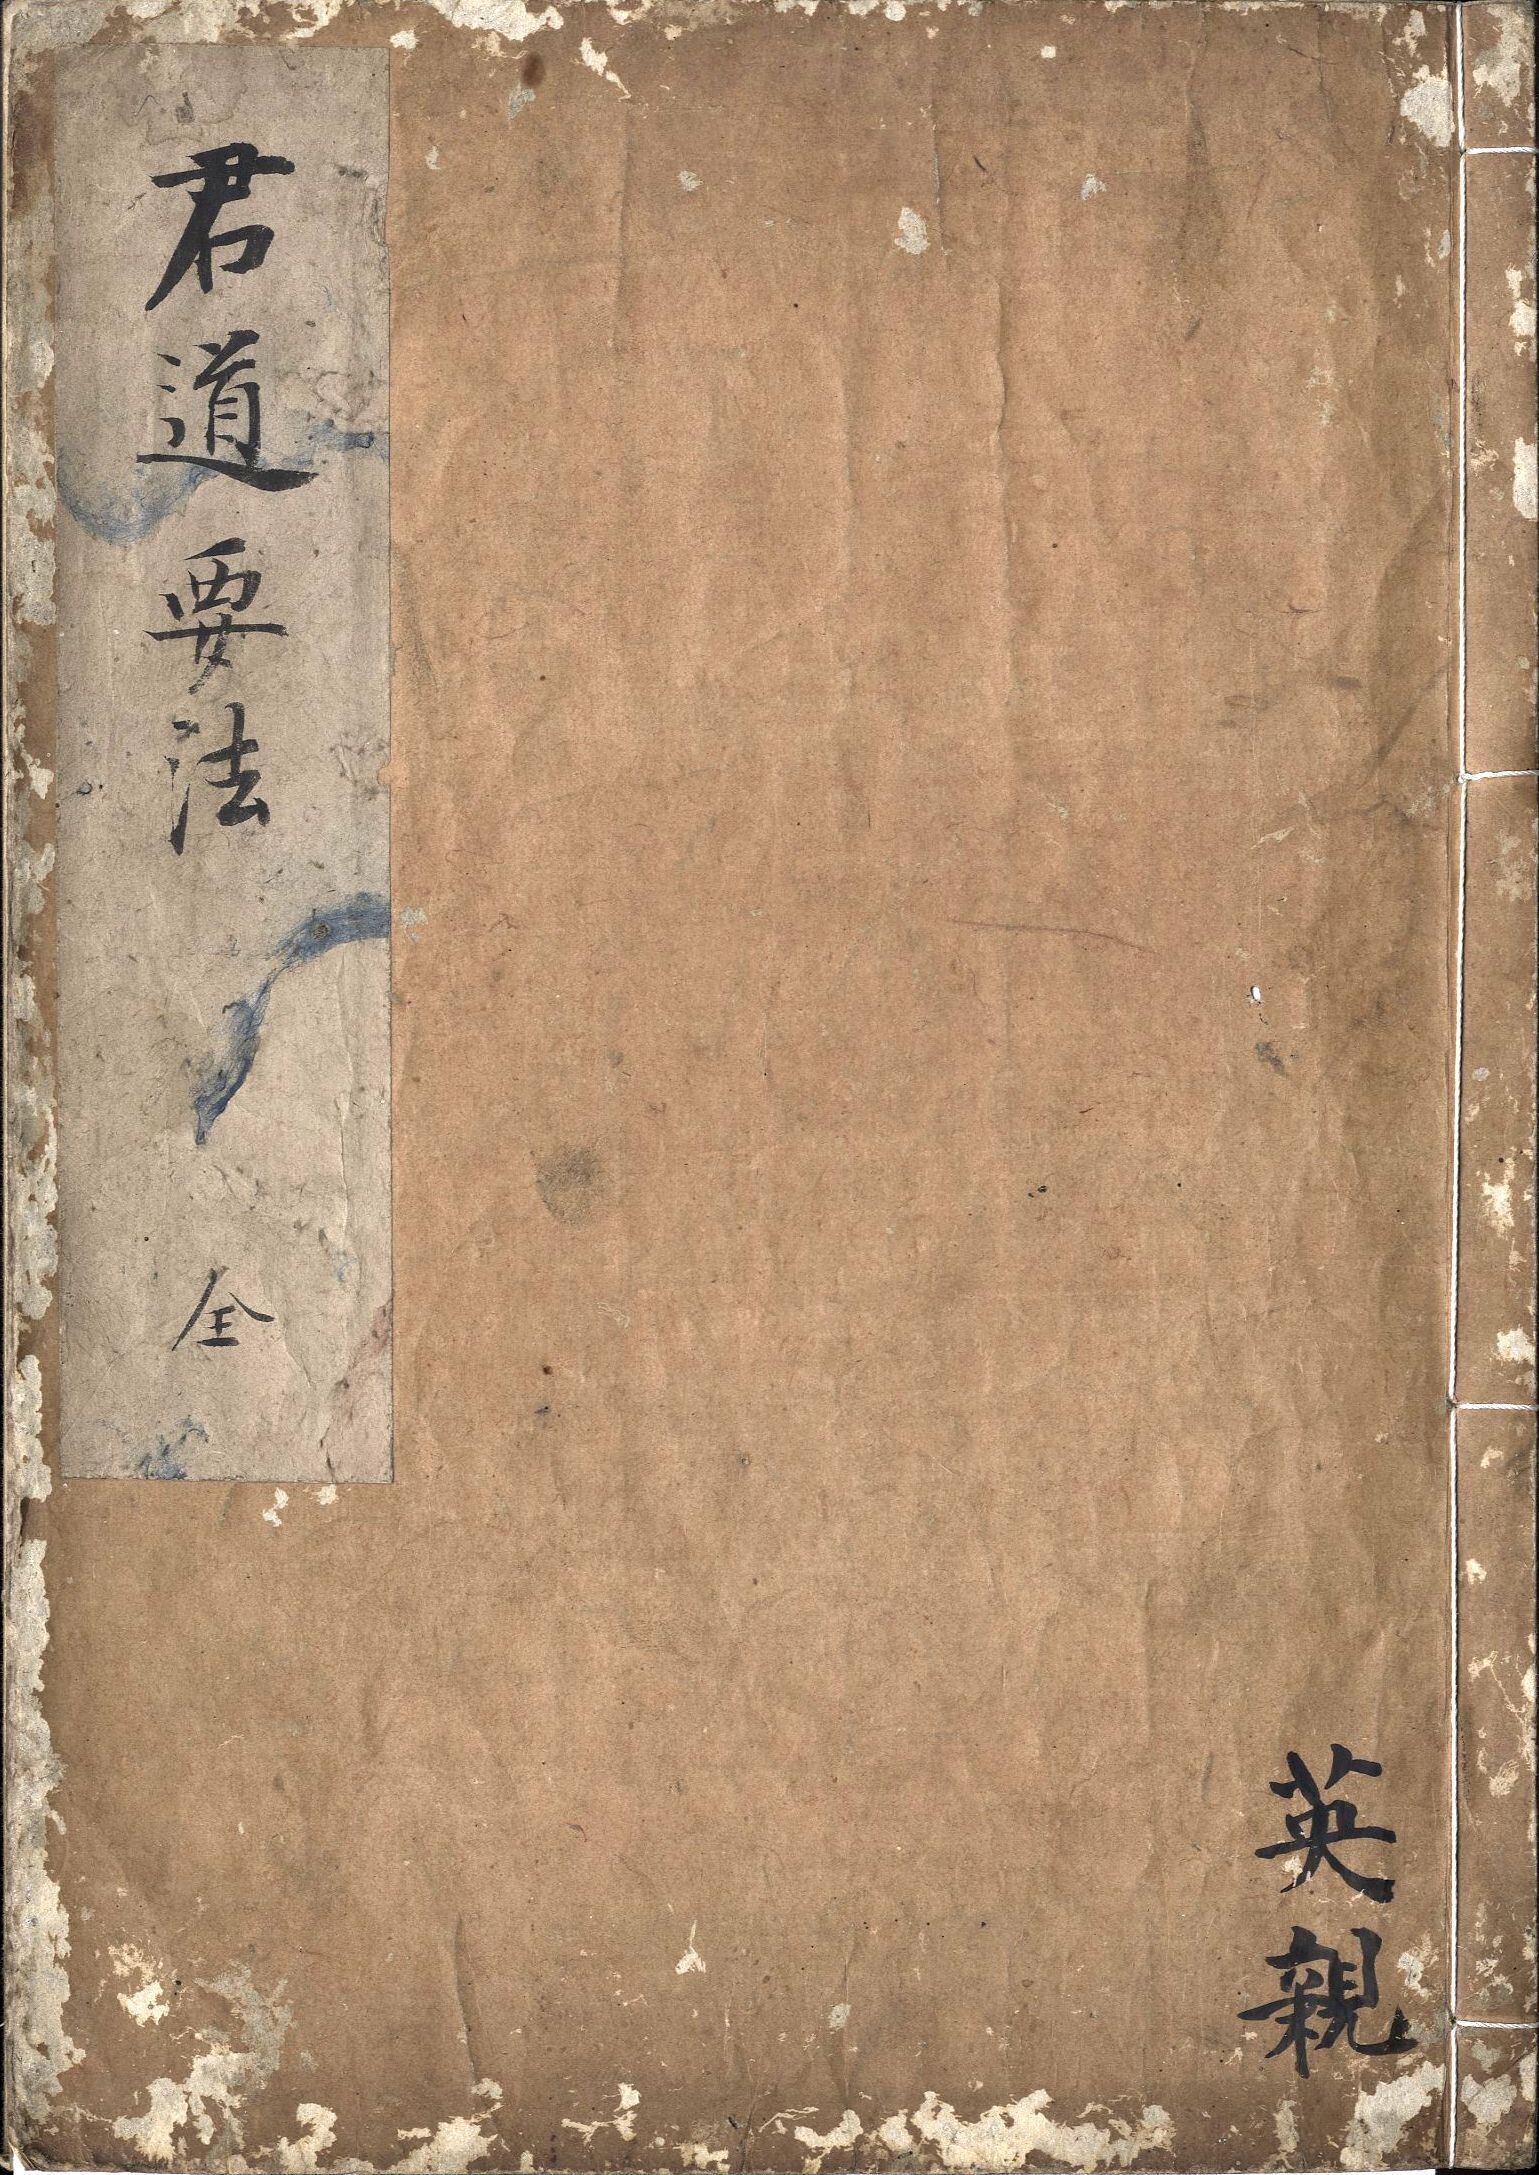 君道要法 全
英親